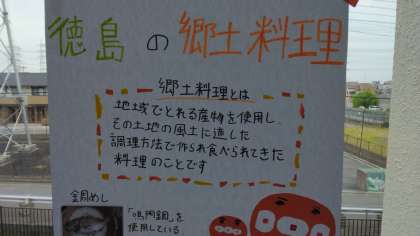 徳島の郷土料理
郷土料理とは
地域でとれる産物を使用し、
その土地の風土に適した
調理方法で作られ食べられてきた
料理のことです
鯛めし
「鳴門鯛」を
使用している